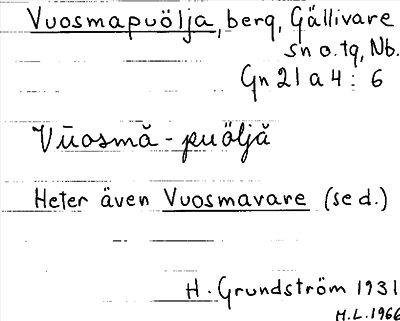 Vuosmapuölja, berg, Gällivare
sn o. tg, Nb.
Gn 21 a 4 : 6
Vūosmă - puöljă
Heter även Vuosmavare (se d.)
H. Grundström 1931
H.L. 1966